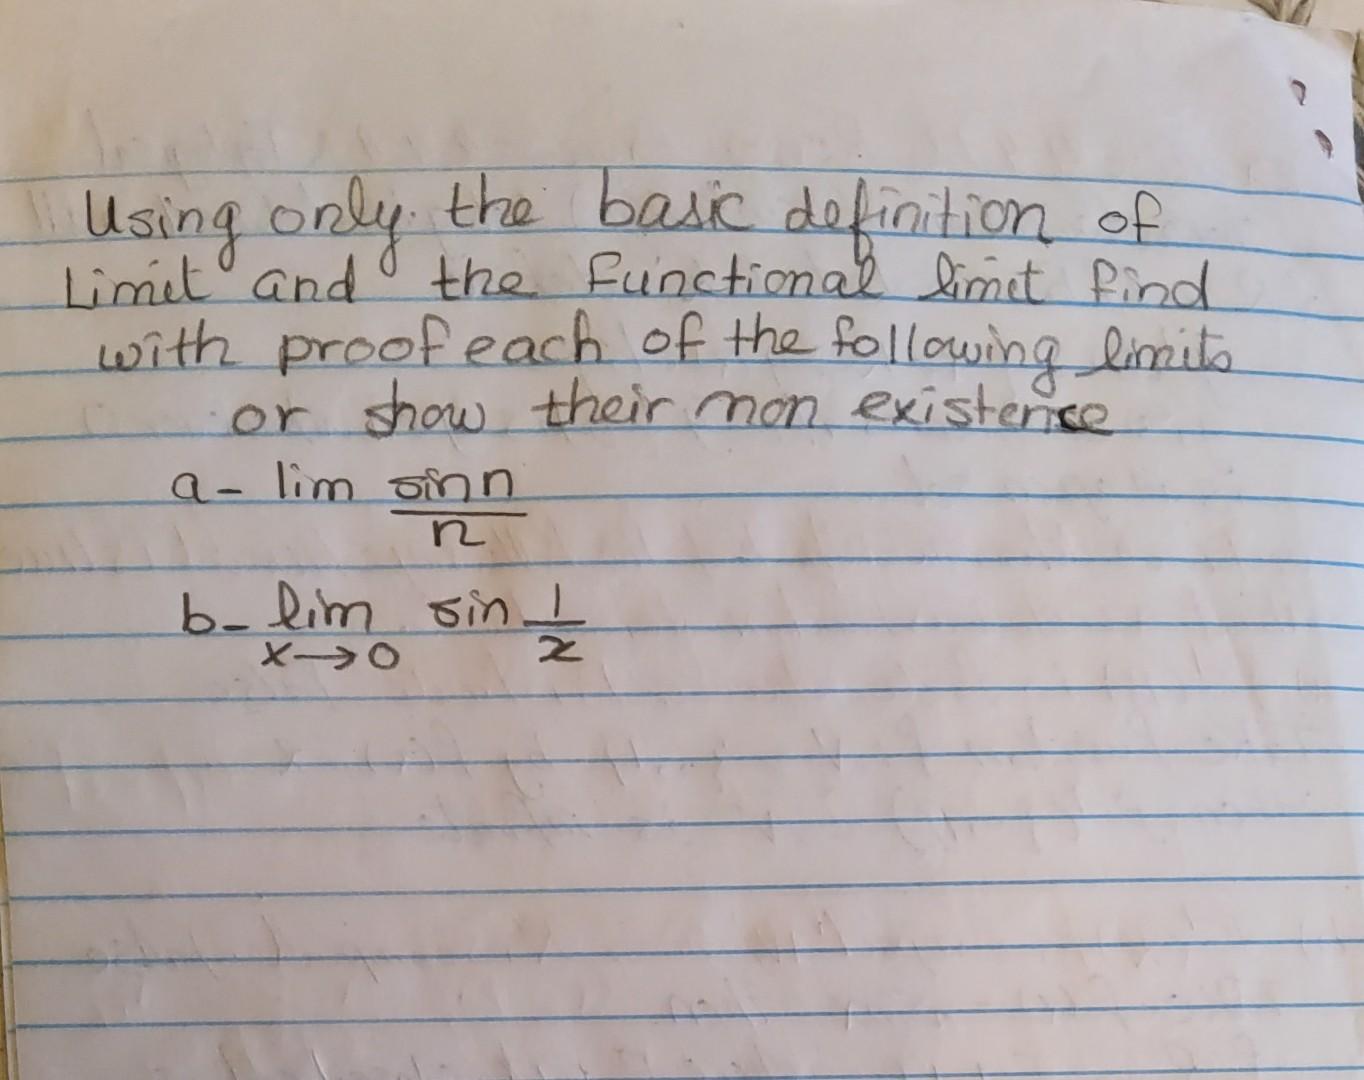 Using only the basic definition of
Limit and the functional limit find
with proof each of the following limits
or show their non existence
a- lim sin n
n
b- lim sin 1
x→0 x